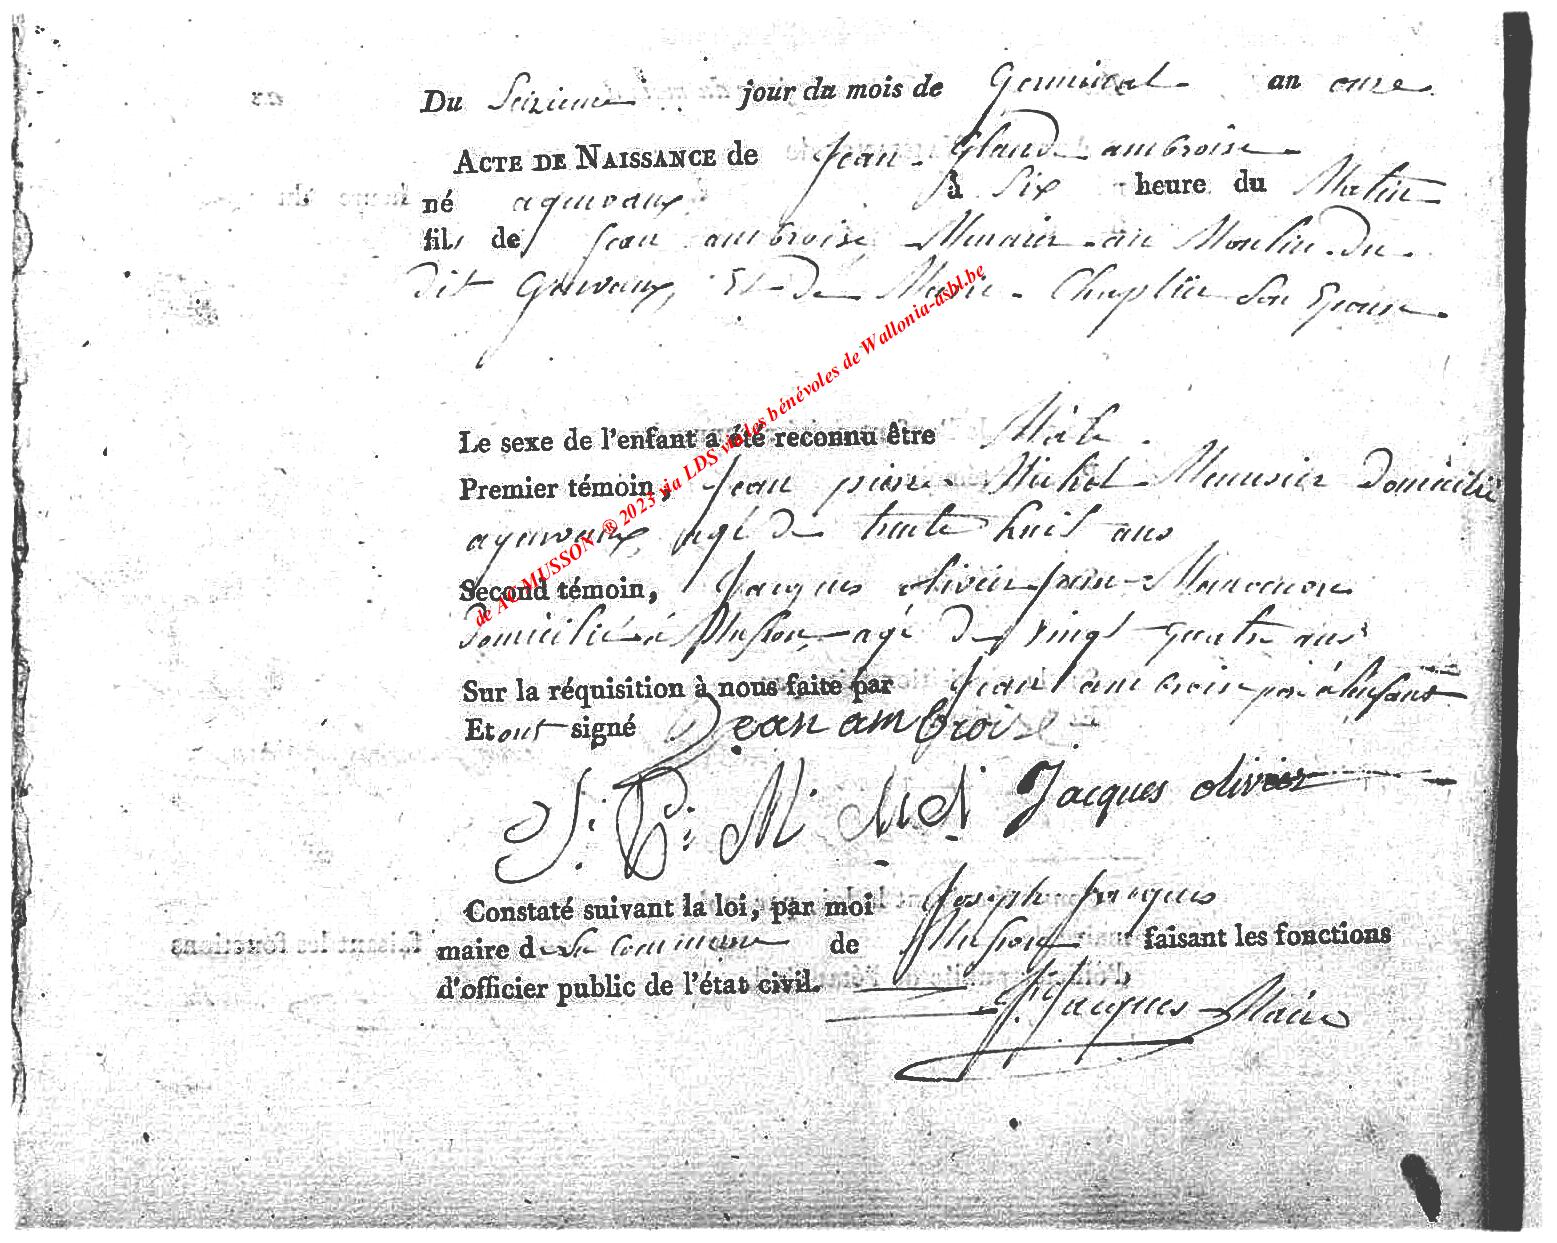 Du Seizieme jour du mois de Germinal an onze
ACTE DE NAISSANCE de Jean Glaude ambroise
né a gervaux à Six heure du Matin
fils de Jean ambroise Munier au Moulin du
dit Gervaux, Et de Marie Chaplier Son Epouse
Le sexe de l'enfant a été reconnu être Mâle
Premier témoin, Jean pierre Michel Menusier Domicilié
a gervaux, agé de trente huit ans
Second témoin, Jacques olivier
Domicilié à Musson, agé de vingt quatre ans
Sur la réquisition à nous faite par Jean ambroise pere à l'enfant
Et ont signé Jean ambroise
J: P: M: Jacques olivier
Constaté suivant la loi, par moi Joseph Jacques
maire de la Commune de Musson faisant les fonctions
d'officier public de l'état civil.
J. Jacques Maire
de AC MUSSON ® 2023 via LDS via les bénévoles de Wallonia-asbl.be